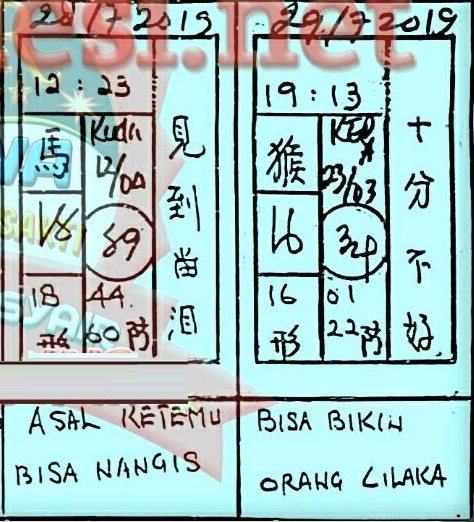 28/7 2019
12 : 23
馬
Kuda
12/00
18
89
18
44.
形
60 防
見到當泪
ASAL KETEMU
BISA NANGIS
29/7 2019
19 : 13
猴
KERA
23/03
16
34
16
01
形
22 防
十分不好.
BISA BIKIN
ORANG CILAKA
esi.net
SAKTI